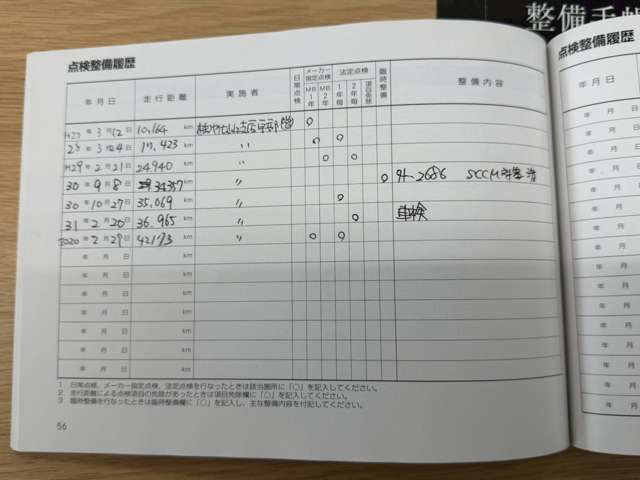 整備手帳
点検整備履歴
点検整備履歴
年月日 走行距離 実施者 日常点検 メーカー指定点検 MB1年 MB2年 法定点検 1年毎 2年毎 項目免除 臨時整備 整備内容
年月日
H27年3月12日 10,164 km
年3月4日 17,423 km 〃
H29年2月21日 24,940 km 〃
30年9月8日 34357 km 〃 91-2686 SCCM
30年10月27日 35,069 km 〃
31年2月20日 36,965 km 〃 車検
2020年2月29日 42173 km 〃
年月日 km
年月日 km
年月日 km
年月日 km
年月日 km
年月日 km
年月日 km
年月日 km
1 日常点検、メーカー指定点検、法定点検を行なったときは該当箇所に「○」を記入してください。
2 走行距離による点検項目の免除があったときは項目免除欄に「○」を記入してください。
3 臨時整備を行なったときは臨時整備欄に「○」を記入し、主な整備内容を付記してください。
56